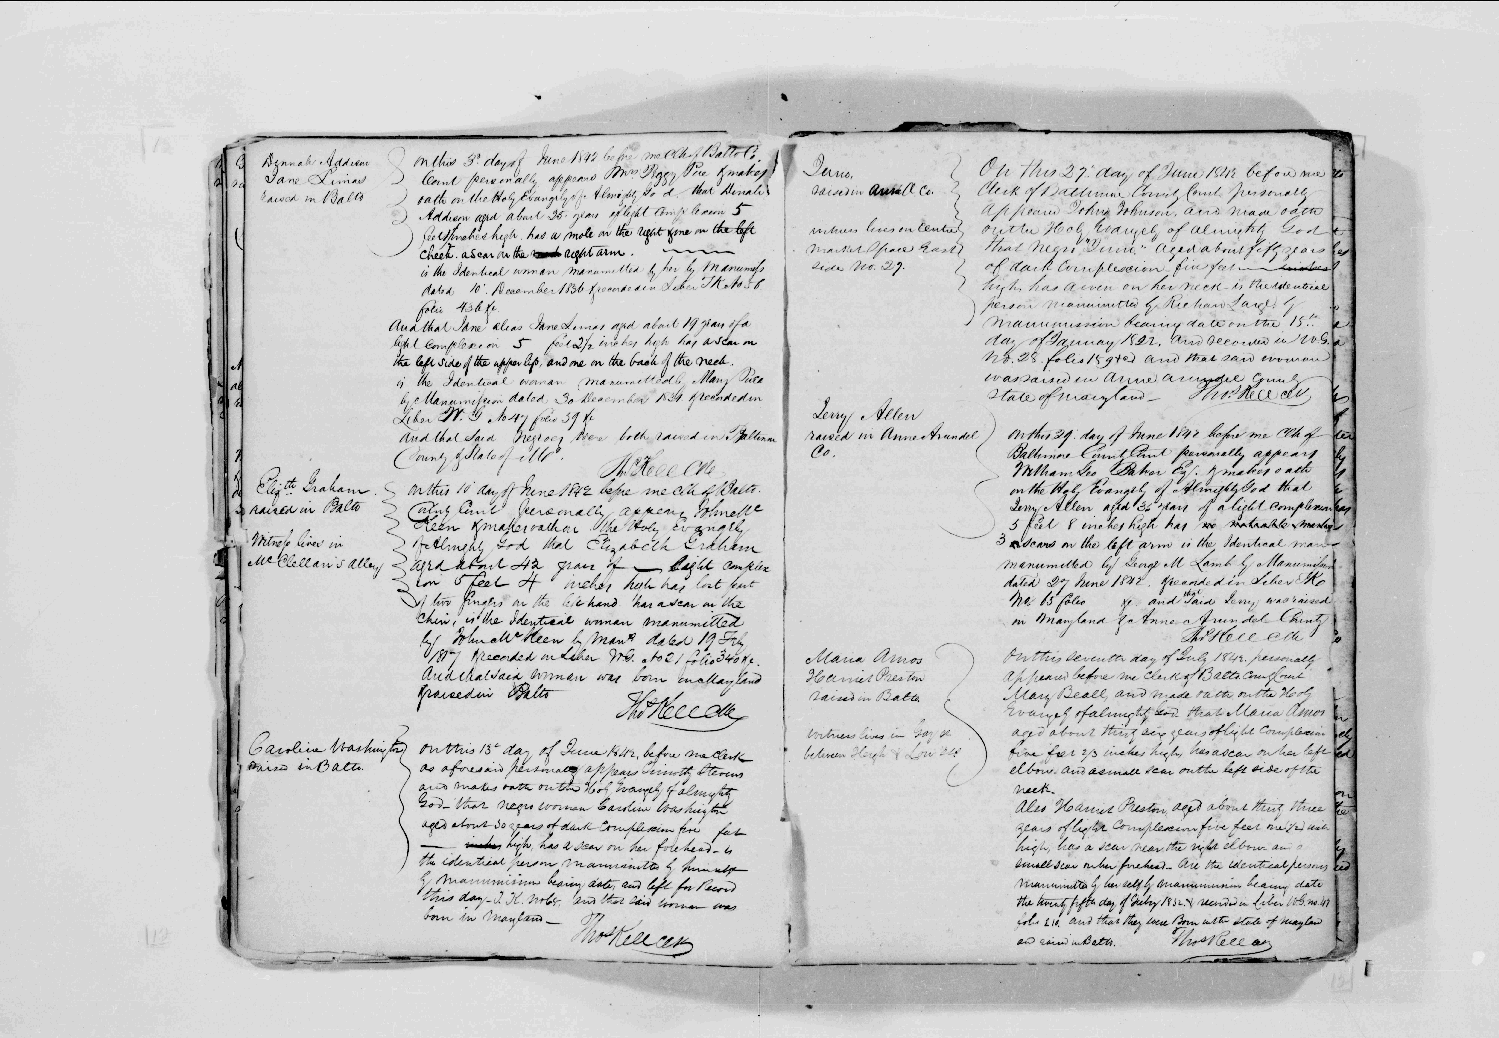 Dennah Addison
Jane Limas
raised in Balto
On this 3d day of June 1842 before me Clk of Balto Co.
Court personally appears Mrs Peggy & makes
oath on the Holy Evangely of Almighty God that Henah
Addison aged about 35 years of light complexion 5
feet inches high has a mole on the right & one on the left
cheek. a scar on the right arm.
is the Identical woman manumitted by her by Manumiss
dated 10 December 1836 & recorded in Liber TK No 56
folio 436 &c
And that Jane alias Jane Limas aged about 19 years of a
light complexion 5 feet 2 1/2 inches high has a scar on
the left side of the upper lip, and one on the back of the neck.
is the Identical woman manumitted by Mary
by Manumission dated 30 December & recorded in
Liber W. G No 47 folio 39 &c
And that said Negroes were both raised in Baltimore
County & State of Md.
Thos Kell Clk
Elizth Graham
raised in Balto
Witness lives in
McClellan's alley
On this 10 day of June 1842 before me Clk of Balto.
County Court personally appears John Mc
Keen & makes oath on the Holy Evangely
of Almighty God that Elizabeth Graham
aged about 42 years of light complex
ion 5 feet 4 inches high has lost part
of two fingers on the left hand has a scar on the
chin, is the Identical woman manumitted
by John McKeen by Mans dated 19 Feby
& recorded in Liber W.G. No 21 folio 340 &c.
And that said woman was born in Maryland
& raised in Balto
Thos Kell Clk
Caroline Washington
raised in Balto.
On this 13th day of June 1842, before me Clerk
as aforesaid personally appears Timothy Stevens
and makes oath on the Holy Evangely of almighty
God that negro woman Caroline Washington
aged about 30 years of dark complexion five feet
inches high, has a scar on her forehead is
the identical person manumitted by himself
by manumission bearing date, and left for Record
this day and that said woman was
born in Maryland
Thos Kell Clk
June.
raised in Anne A Co.
witness lives on Centre
market Space East
side No. 29.
On this 27 day of June 1842 before me
Clerk of Baltimore County Court personally
appeared John Johnson, and made oath
on the Holy Evangely of almighty God
that negro "June" aged about fifty years
of dark Complexion, five feet inches
high, has a wen on her neck is the identical
person manumitted by by
manumission bearing date on the 15th
day of January 1822, and recorded in W.G.
No. 23. folio and that said woman
was raised in Anne arundel County
State of maryland
Thos Kell Clk
Jerry Allen
raised in Anne Arundel
Co.
On this 29. day of June 1842 before me Clk of
Baltimore County Court personally appears
William Geo Esqr. & makes oath
on the Holy Evangely of Almighty God that
Jerry Allen aged 36 years of a light complexion
5 feet 8 inches high has no
3 scars on the left arm is the Identical man
manumitted by George M Lamb by Manumission
dated 27 June 1842. & recorded in Liber
No. 13 folio &c. and that said Jerry was raised
in Maryland & Anne Arundel County
Thos Kell Clk
Maria Amos
Harriet Preston
raised in Balto.
witness lives in Gay st
between High & Low sts
On this seventh day of July 1842. personally
appeared before me Clerk of Balto County Court
Mary Beall, and made oath on the Holy
Evangely of almighty God that Maria Amos
aged about thirty six years of light complexion
five feet 2/3 inches high, has a scar on her left
elbow. and a small scar on the left side of the
neck.
Also Harriet Preston, aged about thirty three
years of light Complexion five feet inch
high, has a scar near the right elbow and a
small scar on her forehead. Are the identical persons
manumitted by herself by manumission bearing date
the twenty fifth day of & recorded in Liber W.G. no
folio 210. and that they were Born in the state of Maryland
and raised in Balto.
Thos Kell Clk